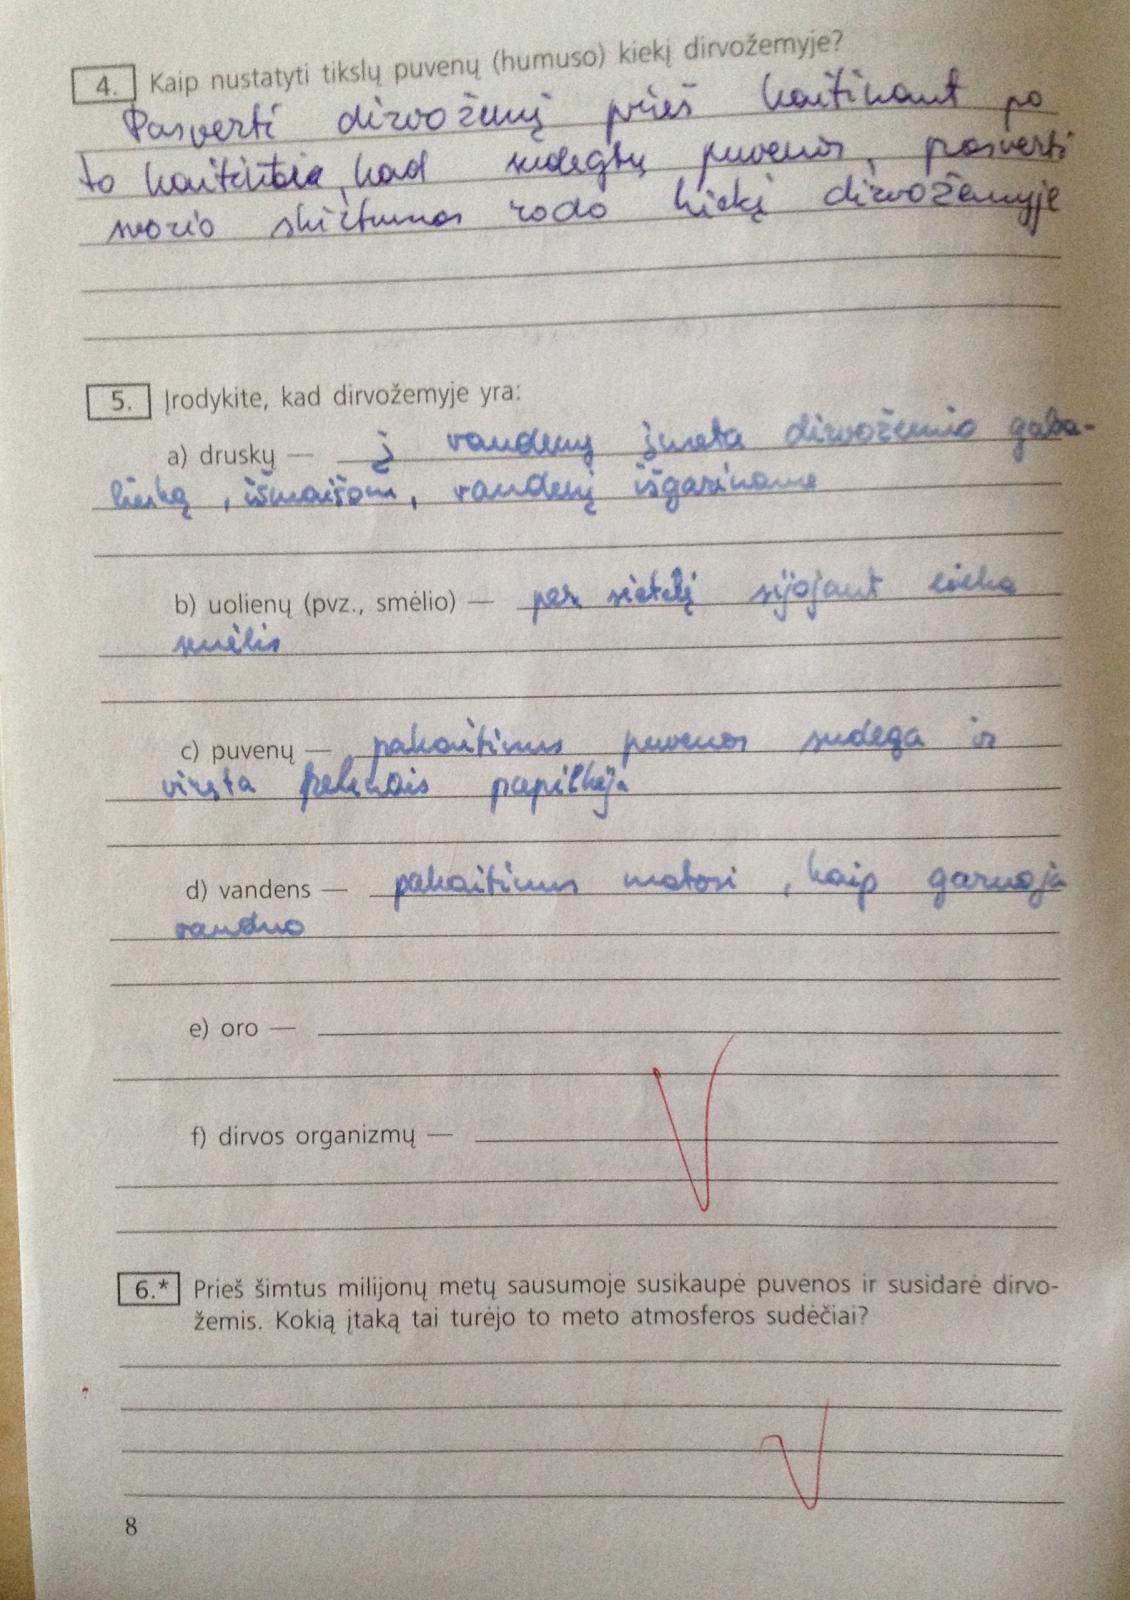 4. Kaip nustatyti tikslų puvenų (humuso) kiekį dirvožemyje?
Pasverti dirvožemį prieš kaitinant po
to kaitinti, kad sudegtų puvenos, pasverti
svorio skirtumas rodo kiekį dirvožemyje
5. Įrodykite, kad dirvožemyje yra:
a) druskų — į vandenį įmeta dirvožemio gaba-
liuką, išmaišom, vandenį išgariname
b) uolienų (pvz., smėlio) — per sietelį sijojant lieka
smėlis
c) puvenų — pakaitinus puvenos sudega ir
virsta pelenais papilkėja
d) vandens — pakaitinus matosi, kaip garuoja
vanduo
e) oro —
f) dirvos organizmų —
6.* Prieš šimtus milijonų metų sausumoje susikaupė puvenos ir susidarė dirvo-
žemis. Kokią įtaką tai turėjo to meto atmosferos sudėčiai?
8